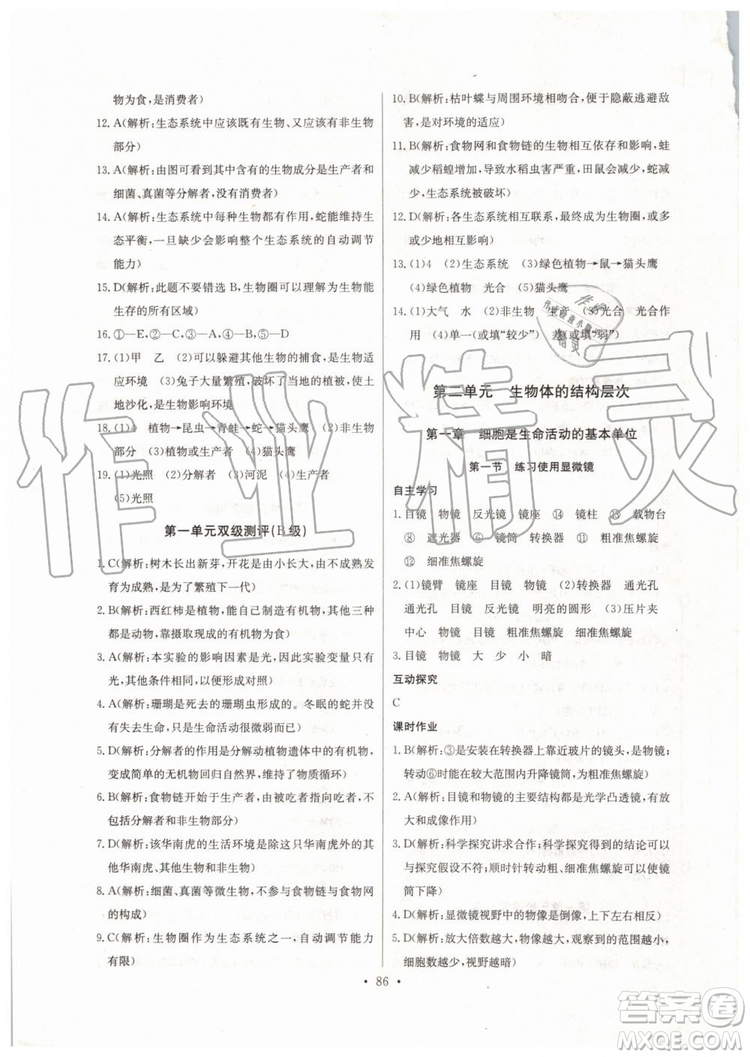 物为食,是消费者)
12. A(解析:生态系统中应该既有生物、又应该有非生物
部分)
13. A(解析:由图可看到其中含有的生物成分是生产者和
细菌、真菌等分解者,没有消费者)
14. A(解析:生态系统中每种生物都有作用,蛇能维持生
态平衡,一旦缺少会影响整个生态系统的自动调节
能力)
15. D(解析:此题不要误选 B,生物圈可以理解为生物能
生存的所有区域)
16. ①—E、②—A、③—C、④—B、⑤—D
17. (1)甲 乙 (2)可以躲避其他生物的捕食,是生物适
应环境 (3)兔子大量繁殖,破坏了植被,使土
地沙化,是生物影响环境
18. (1)4 植物→昆虫→青蛙→蛇→猫头鹰
(2)植物 (3)植物或生产者 (4)猫头鹰
19. (1)光照 (2)分解者 (3)河 (4)生产者
(5)光照
第一单元双级测评(B级)
1. C(解析:树木长出新芽,开花是由小长大,由不成熟发
育为成熟,是为了繁殖下一代)
2. B(解析:西红柿是植物,能自己制造有机物,其他三种
都是动物,靠摄取现成的有机物为食)
3. A(解析:本实验的影响因素是光,因此实验变量只有
光,其他条件相同,以便形成对照)
4. A(解析:珊瑚是死去的珊瑚虫形成的。冬眠的蛇并没
有失去生命,只是生命活动很微弱而已)
5. D(解析:分解者的作用是分解动植物遗体中的有机物,
变成简单的无机物回归自然被植物重新利用)
6. B(解析:食物链开始于生产者,由被吃者指向吃者,不
包括分解者和非生物部分)
7. D(解析:该华南虎的生活环境是除这只华南虎以外的
其他华南虎、其他生物和非生物)
8. A(解析:细菌、真菌等微生物,不参与食物链与食物网
的构成)
9. C(解析:生物圈作为生态系统之一,自动调节能力
有限)
10. B(解析:枯叶蝶与周围环境相吻合,便于隐蔽逃避敌
害,是对环境的适应)
11. B(解析:食物网和食物链的生物相互依存和影响,蛙
减少稻蝗增加,导致水稻虫害严重,田鼠会减少,蛇减
少,生态系统被破坏)
12. D(解析:各生态系统相互联系,最终成为生物圈,彼此
或多或少地影响)
13. (1)4 (2)生态系统 (3)绿色植物→鼠→猫头鹰
(4)绿色植物 光合 (5)猫头鹰
14. (1)大气 水 (2)非生物 生产者 (3)光合 光合作
用 (4)单一(或填“较少”) 差(或填“弱”)
第二单元 生物体的结构层次
第一章 细胞是生命活动的基本单位
第一节 练习使用显微镜
自主学习
1. 目镜 物镜 反光镜 镜座 ④ 镜柱 ⑥ 载物台
⑧ 遮光器 ⑨ 镜筒 转换器 ⑪ 粗准焦螺旋
⑫ 细准焦螺旋
2. (1)镜臂 镜座 目镜 (2)转换器 物镜 通光孔
通光孔 目镜 反光镜 明亮的圆形 (3)压片夹
中心 物镜 目镜 粗准焦螺旋 细准焦螺旋
3. 目镜 物镜 大 少 小 暗
互动探究
C
课时作业
1. B(解析:③是安装在转换器上靠近玻片的镜头,是物镜;
转动⑥时能在较大范围内升降镜筒,为粗准焦螺旋)
2. A(解析:目镜和物镜的主要结构都是光学凸透镜,有放
大和成像作用)
3. D(解析:科学探究讲求合作;科学探究得到的结论可以
与探究假设不符;顺时针转动粗、细准焦螺旋都会使镜筒
下降)
4. D(解析:显微镜视野中的物像是倒像,上下、左右相反)
5. D(解析:放大倍数越大,物像越大,观察到的范围越小,
细胞数越少,视野越暗)
· 86 ·
作业精灵
答案圈
MXQE.COM